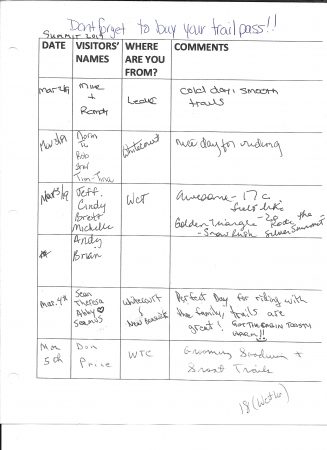 Dont forget to buy your trail pass!!
SUMMIT 2019
DATE VISITORS' NAMES WHERE ARE YOU FROM? COMMENTS
Mar 2/19 Mike + Randy Leduc cold day, smooth trails
Mar 3/19 Norm Tu Rob Brad Tim-Tina Whitecourt nice day for riding
Mar 3/19 Jeff. Cindy Brett Michelle WCT Awesome - 17c. feels like -20
Golden Triangle - Rode the
- Snow Rush Silver Summit
Andy
Brian
Mar. 4th Sean Theresa Abby Seamus Whitecourt & New Brunswick Perfect Day for riding with
the family, trails are
great! GOT THE CABIN TOASTY
WARM!!
Mar 5th Don Price WTC Grooming Sundown +
Trails
18 (